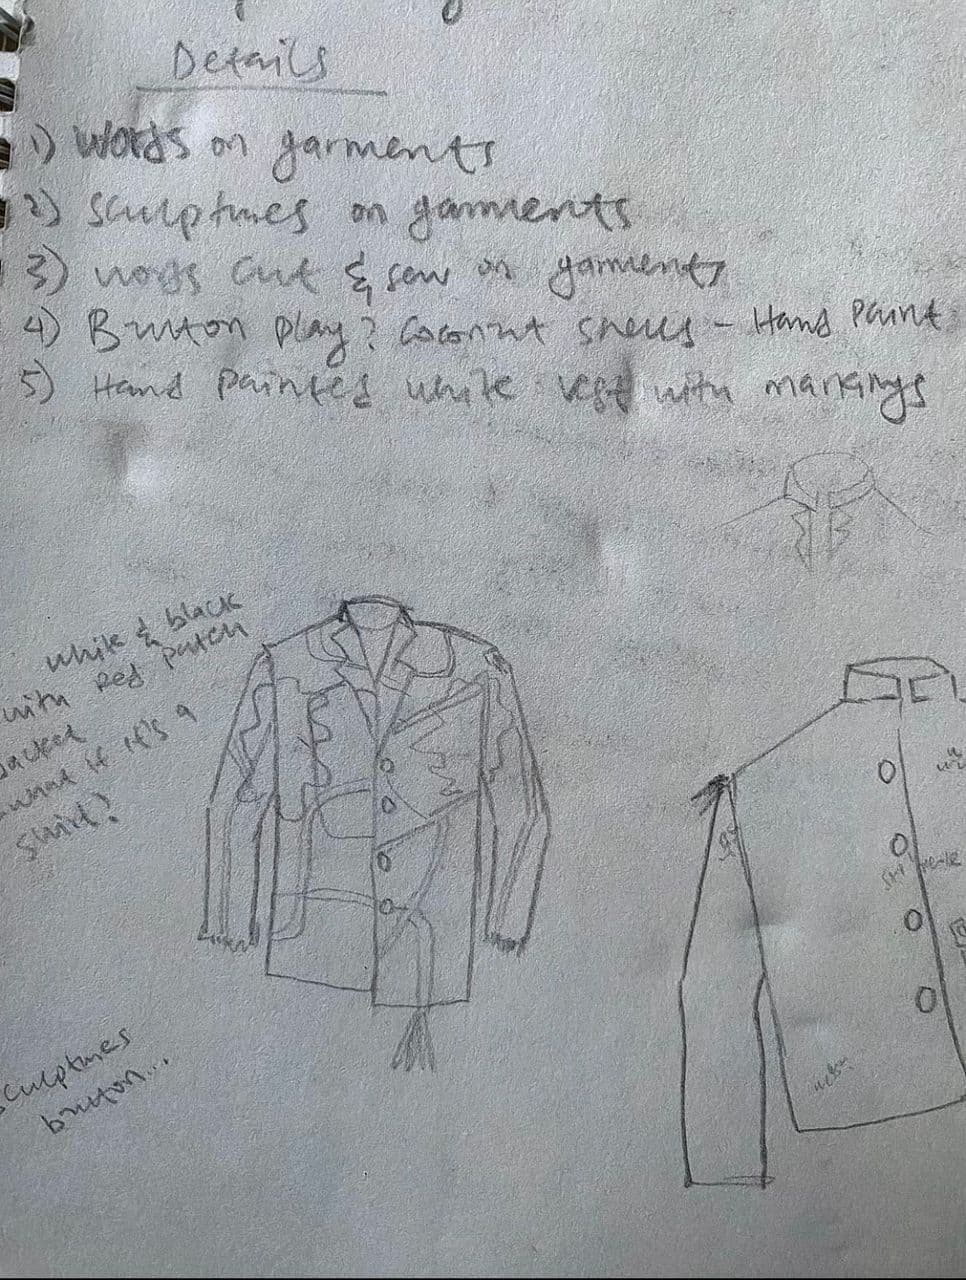 Details
1) words on garments
2) sculptures on garments
3) words cut & sew on garments
4) Button play? Coconut shells - Hand Paint
5) Hand Painted white vest with markings
white & black
with Red patch
jacket
what if it's a
shirt?
sculptures
button...